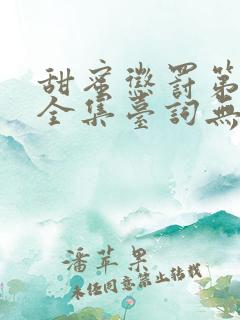 甜蜜懲罰第
全集臺詞無
潘苹果
未经同意禁止转载